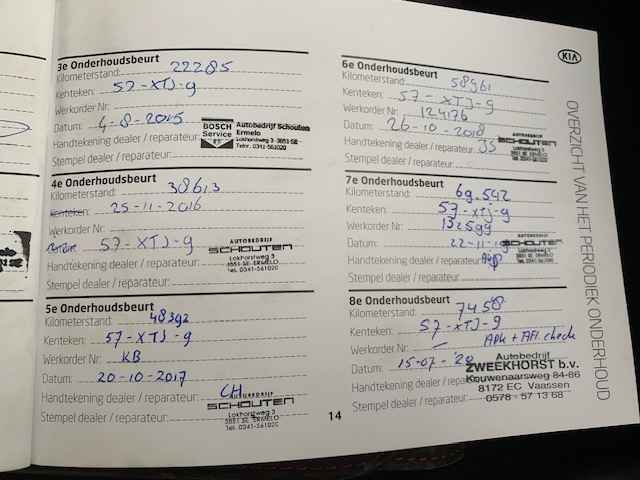 3e Onderhoudsbeurt
Kilometerstand: 22285
Kenteken: 57-XTJ-9
Werkorder Nr:
Datum: 4-8-2015
Handtekening dealer / reparateur:
Stempel dealer / reparateur:
BOSCH
Service
Autobedrijf Schouten
Ermelo
Lokhorstweg 3 3851 SE
Telnr. 0341-561020
4e Onderhoudsbeurt
Kilometerstand: 38613
Kenteken: 25-11-2016
Werkorder Nr:
57-XTJ-9
Handtekening dealer / reparateur:
Stempel dealer / reparateur:
AUTOBEDRIJF
SCHOUTEN
Lokhorstweg 3
3851 SE ERMELO
Tel. 0341-561020
5e Onderhoudsbeurt
Kilometerstand: 48392
Kenteken: 57-XTJ-9
Werkorder Nr: KB
Datum: 20-10-2017
Handtekening dealer / reparateur: CH
Stempel dealer / reparateur:
SCHOUTEN
Lokhorstweg 3
3851 SE ERMELO
Tel. 0341-561020
14
6e Onderhoudsbeurt
Kilometerstand: 58961
Kenteken: 57-XTJ-9
Werkorder Nr: 124176
Datum: 26-10-2018
Handtekening dealer / reparateur: JS
Stempel dealer / reparateur:
AUTOBEDRIJF
SCHOUTEN
7e Onderhoudsbeurt
Kilometerstand: 69.542
Kenteken: 57-XTJ-9
Werkorder Nr: 132599
Datum: 22-11-19
Handtekening dealer / reparateur:
Stempel dealer / reparateur:
SCHOUTEN
8e Onderhoudsbeurt
Kilometerstand: 7458
Kenteken: 57-XTJ-9
Werkorder Nr: - APK + AFL. check
Datum: 15-07-'20
Handtekening dealer / repara
Stempel dealer / reparateur:
Autobedrijf
ZWEEKHORST b.v.
Kouwenaarsweg 84-86
8172 EC Vaassen
0578 - 57 13 68
KIA
OVERZICHT VAN HET PERIODIEK ONDERHOUD